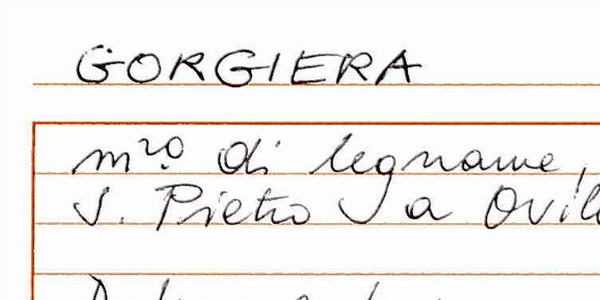 GORGIERA
m.ro di legname,
S. Pietro a Ovil